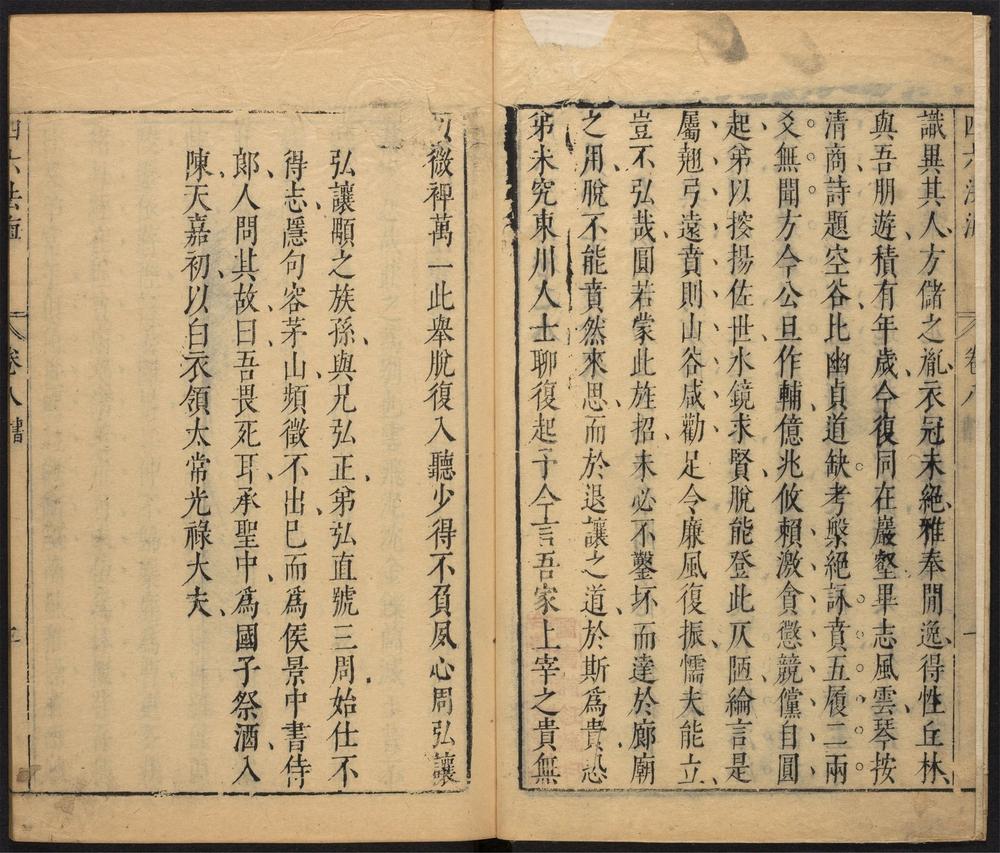 四六法海
卷八
識異其人方儲之胤衣冠未絕雅奉閒逸得性丘林
與吾朋遊積有年歲今復同在巖壑畢志風雲琴按
清商詩題空谷比幽貞道缺考槃絕詠賁五履二兩
爻無聞方今公旦作輔億兆攸賴激貪懲競儻自圓
起第以挍揚佐世水鏡求賢脫能登此仄陋綸言是
屬翹弓遠賁則山谷咸勸足令廉風復振懦夫能立
豈不弘哉圓若蒙此旌招未必不鑿坏而達於廊廟
之用脫不能賁然來思而於退讓之道於斯為貴恐
弟未究東川人士聊復起予今言吾家上宰之貴無
微裨萬一此舉脫復入聽少得不負夙心周弘讓
弘讓顒之族孫與兄弘正弟弘直號三周始仕不
得志隱句容茅山頻徵不出已而為侯景中書侍
郎人問其故曰吾畏死耳承聖中為國子祭酒入
陳天嘉初以白衣領太常光祿大夫
四六法海
卷八 書